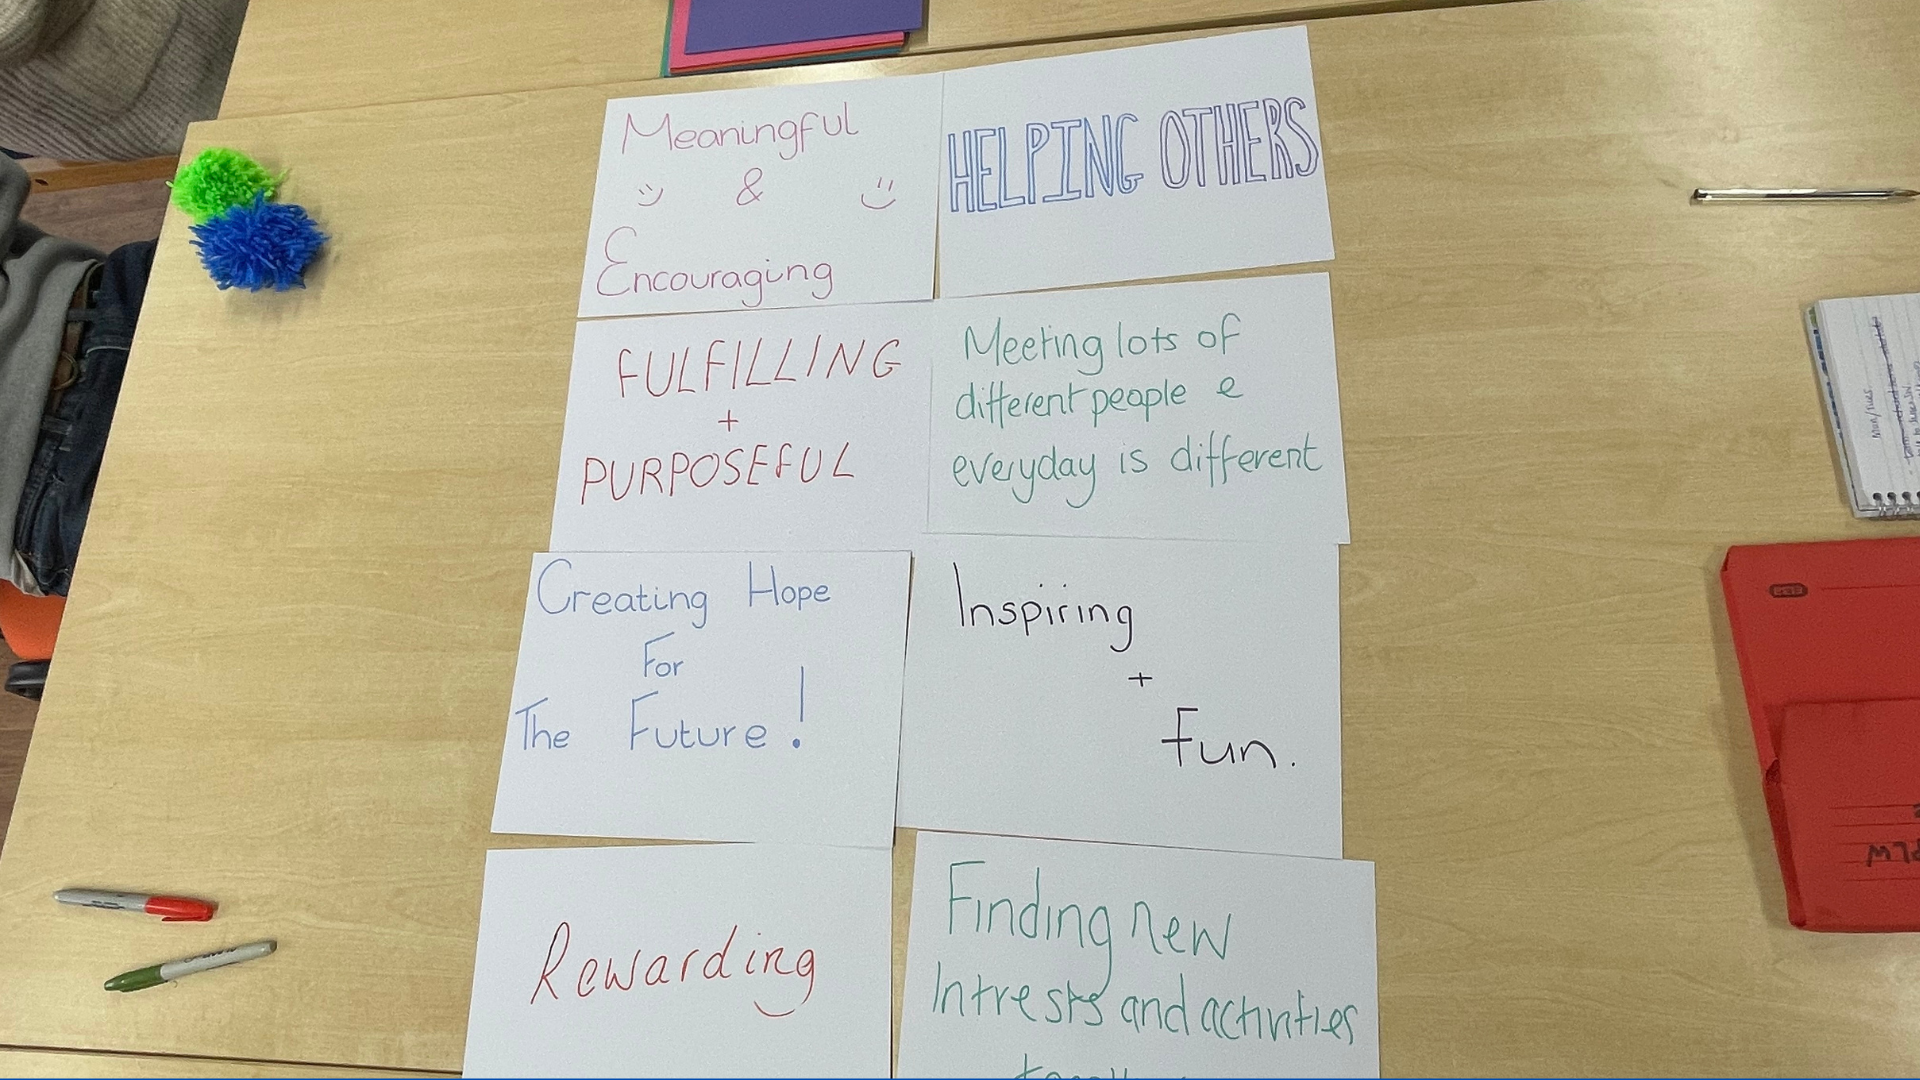 Meaningful
&
Encouraging
HELPING OTHERS
FULFILLING
+
PURPOSEFUL
Meeting lots of
different people e
everyday is different
Creating Hope
For
The Future!
Inspiring
+
Fun.
Rewarding
Finding new
Intrests and activities